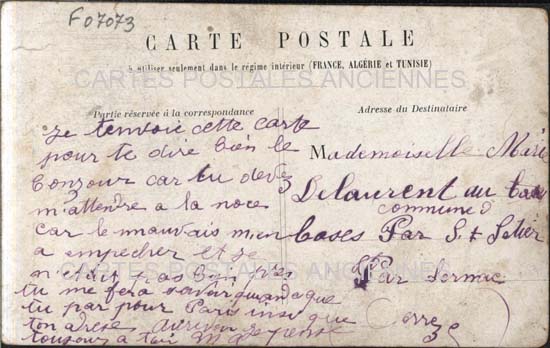 F07073
CARTE POSTALE
à utiliser seulement dans le régime intérieur (FRANCE, ALGÉRIE et TUNISIE)
CARTES POSTALES ANCIENNES
Partie réservée à la correspondance
Adresse du Destinataire
Je tenvoie cette carte
pour te dire bien le
bonzour car tu devez
m'attendre a la noce
car le mauvais m'en
a empecher et je
tu me fera savoir quand que
tu par pour Paris insi que
ton adrese aurevoir je pense
toujours a toi
Mademoiselle Marie
Delaurent au
commune d
Par
Par
Correze
CARTES POSTALES ANCIENNES